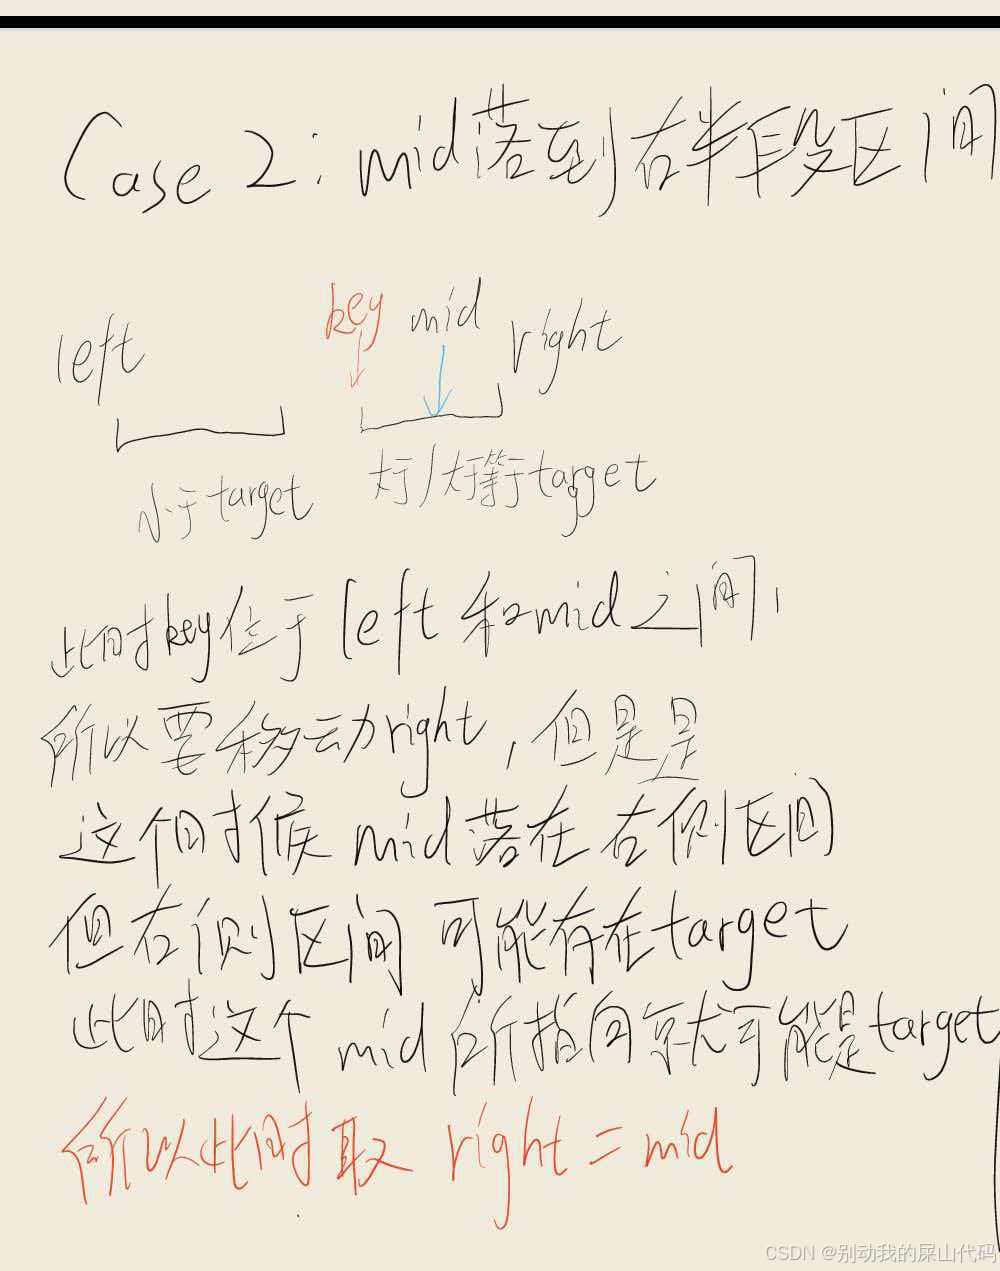 Case 2: mid落到右半段区间
key mid
left right
小于target 大于/大于等于target
此时key位于left和mid之间,
所以要移动right,但是是
这个时候mid落在右侧区间
但右侧区间可能存在target
此时这个mid所指向就可能是target
所以此时取 right = mid
CSDN @别动我的屎山代码